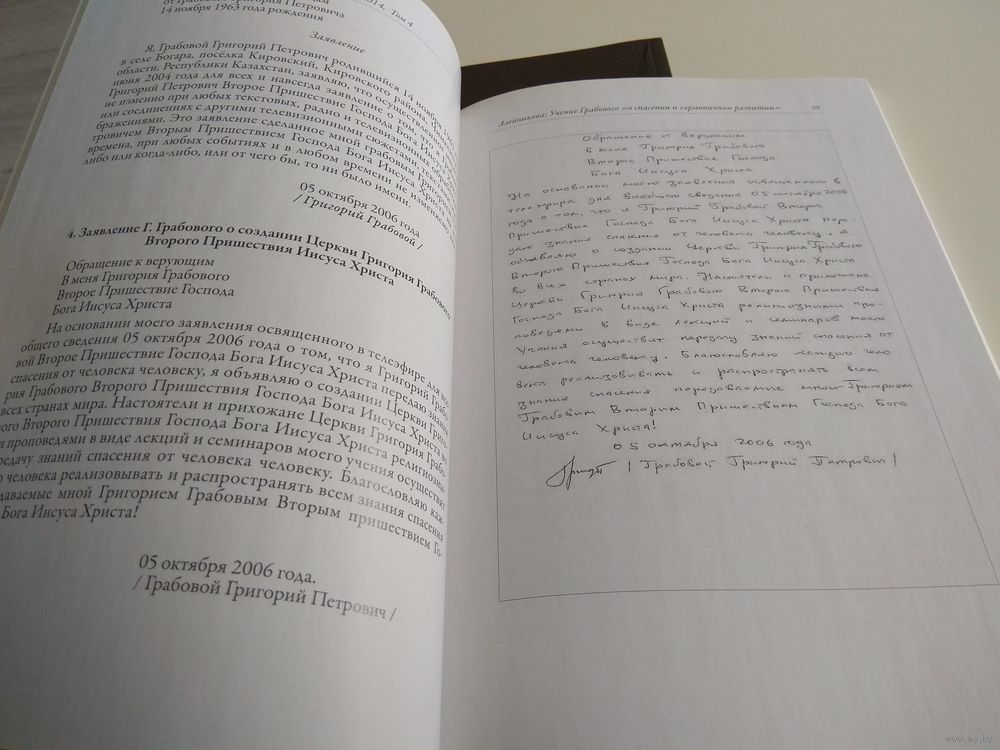 2014, Том 4
от Грабового Григория Петровича
14 ноября 1963 года рождения
Заявление
Я, Грабовой Григорий Петрович родившийся 14 ноября
в селе Богара, посёлка Кировский, Кировского района,
области, Республики Казахстан, заявляю, что осуществил
июня 2004 года для всех и навсегда заявление о том, что я
Григорий Петрович Второе Пришествие Господа Бога Иисуса
не изменно при любых текстовых, радио и телевизионных
или соединениях с другими телевизионными сюжетами, текстами
бражениями. Это заявление сделанное мной Грабовым Григорием
тровичем Вторым Пришествием Господа Бога Иисуса Христа
времена, при любых событиях и в любом времени не изменно
либо или когда-либо, или от чего бы, то ни было имени.
05 октября 2006 года
/ Григорий Грабовой /
4. Заявление Г. Грабового о создании Церкви Григория Грабового
Второго Пришествия Иисуса Христа
Обращение к верующим
В меня Григория Грабового
Второе Пришествие Господа
Бога Иисуса Христа
На основании моего заявления освященного в телеэфире для все-
общего сведения 05 октября 2006 года о том, что я Григорий Грабо-
вой Второе Пришествие Господа Бога Иисуса Христа передаю знания
спасения от человека человеку, я объявляю о создании Церкви Григо-
рия Грабового Второго Пришествия Господа Бога Иисуса Христа во
всех странах мира. Настоятели и прихожане Церкви Григория Грабо-
вого Второго Пришествия Господа Бога Иисуса Христа религиозны-
и проповедями в виде лекций и семинаров моего учения осуществят
редачу знаний спасения от человека человеку. Благословляю каж-
о человека реализовывать и распространять всем знания спасения
даваемые мной Григорием Грабовым Вторым пришествием Го-
Бога Иисуса Христа!
05 октября 2006 года.
/ Грабовой Григорий Петрович /
Алейникова: Учение Грабового «о спасении и гармоничном развитии»
59
Обращение к верующим
в меня Григория Грабового
Второе Пришествие Господа
Бога Иисуса Христа
На основании моего заявления освященного в
телеэфире для всеобщего сведения 05 октября 2006
года о том, что я Григорий Грабовой Второе
Пришествие Господа Бога Иисуса Христа пере-
даю знания спасения от человека человеку, я
объявляю о создании Церкви Григория Грабового
Второго Пришествия Господа Бога Иисуса Христа
во всех странах мира. Настоятели и прихожане
Церкви Григория Грабового Второго Пришествия
Господа Бога Иисуса Христа религиозными про-
поведями в виде лекций и семинаров моего
Учения осуществят передачу знаний спасения от
человека человеку. Благословляю каждого чело
века реализовывать и распространять всем
знания спасения передаваемые мной Григорием
Грабовым Вторым Пришествием Господа Бога
Иисуса Христа!
05 октября 2006 года
/ Грабовой Григорий Петрович /
www.ay.by